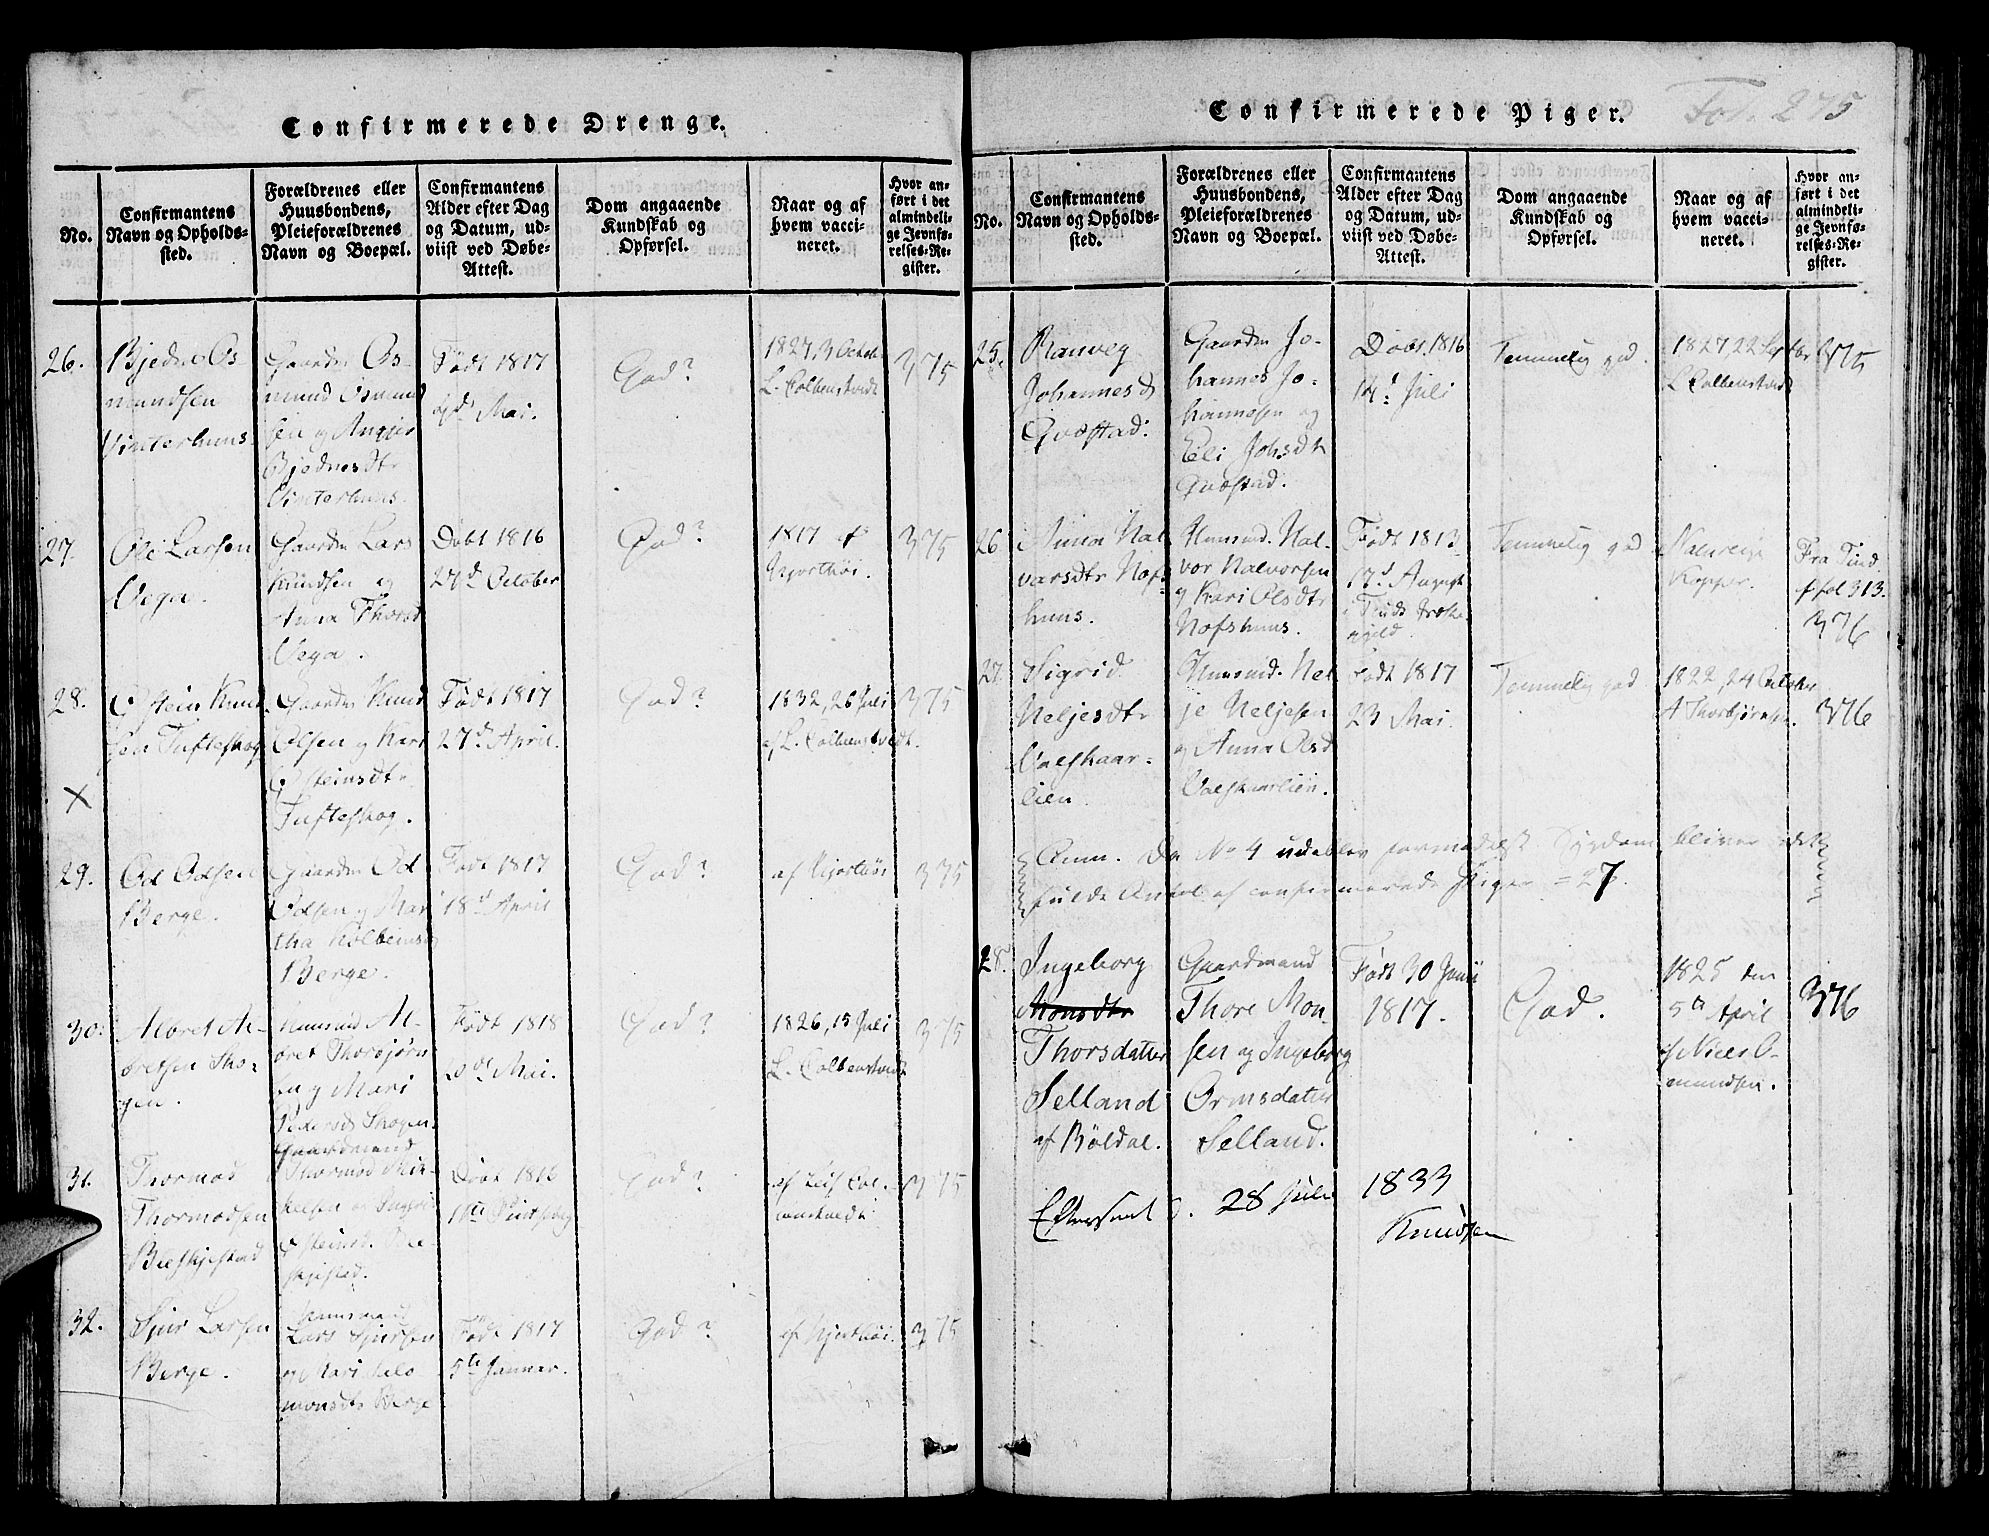 Confirmerede Drenge.
No.
Confirmantens
Navn og Opholds-
sted.
Forældrenes eller
Huusbondens,
Pleieforældrenes
Navn og Boepæl.
Confirmantens
Alder efter Dag
og Datum, ud-
viist ved Døbe-
Attest.
Dom angaaende
Kundskab og
Opførsel.
Naar og af
hvem vacci-
neret.
Hvor an-
ført i det
almindeli-
ge Jevnfø-
relses-Re-
gister.
26.
Bjedne Os
mundsen
Vinterhuus
Gaardm Os-
mund Osmund
sen og
Bjednesdtr
Vinterhuus.
Født 1817
Mai.
God?
1827, 3 Octob.
L. Colbenstvedt
375
27.
Ole Larsen
Vega.
Gaardm Lars
Knudsen og
Anna Thorsd
Vega.
Døbt 1816
27d October
God?
1817 af
Hjorthöi.
375
28.
Østein Knud
sen Tufteskog
X
Gaardm Knud
Olsen og Kari
Østeinsdtr
Tufteskog.
Født 1817
27d April.
God?
1832, 26 Juli
af L. Colbenstvedt.
375
29.
Od Odsen
Berge.
Gaardm Od
Odsen og Mar
tha Kolbeins
Berge.
Født 1817
18d April
God?
af Hjorthöi
375
30.
Aloret Al-
oretsen Sko-
gen.
Huusmd Al-
oret Thorbjørn
sen og Mari
Pedersd Skogen.
Født 1818
Mai.
God?
1826, 15 Juli
L. Colbenstvedt
375
31.
Thormod
Thormodsen
Bleskjestad
Gaardmand
Thormod Mik-
kelsen og
Østeinsd. Ble-
skjestad.
Døbt 1816
God?
af Leif Col-
benstvedt
375
32.
Sjur Larsen
Berge.
Huusmand
Lars Sjursen
og Mari Salo
monsdtr Berge
Født 1817
5te Januar.
God?
af Hjorthöi.
375
Confirmerede Piger.
Fol. 275
No.
Confirmantens
Navn og Opholds-
sted.
Forældrenes eller
Huusbondens,
Pleieforældrenes
Navn og Boepæl.
Confirmantens
Alder efter Dag
og Datum, ud-
viist ved Døbe-
Attest.
Dom angaaende
Kundskab og
Opførsel.
Naar og af
hvem vacci-
neret.
Hvor an-
ført i det
almindeli-
ge Jevnfø-
relses-Re-
gister.
25.
Ranveg
Johannesd
Qvæstad.
Gaardm Jo-
hannes Jo-
hannesen og
Eli Johsdtr
Qvæstad.
Døbt. 1816
14d Juli
Temmelig god.
1827, 22 Septbr
L Colbenstvedt
375
26
Anna Hal
varsdtr Hofs
huus.
Huusmd. Hal-
vor Halvorsen
og Kari Olsdtr
Hofshuus.
Født 1813
17d August
i Tinds Præste
gjeld.
Temmelig god
Naturlige
Kopper.
Fra Tind
f fol 313.
376
27.
Sigrid
Heljesdtr
Valskaar-
lien
Huusmd. Hel
je Heljesen
og Anna Olsd
Valskaarlien.
Født 1817
23 Mai
Temmelig god
1822, 24 Octobr
A Thorbjørnsen.
376
Anm. Da No 4 udeblev formedelst Sygdom, bliver det
fulde Antal af confirmerede Piger = 27.
28.
Ingeborg
Monsdtr
Thorsdatter
Selland
af Röldal.
Gaardmand
Thore Mon-
sen og Ingeborg
Ormsdatter
Selland.
Født 30 Juni
1817.
God.
1825 den
5te April
af Niels O-
mundsen.
376
Efterseet d. 28 Juli 1833
Knudsen